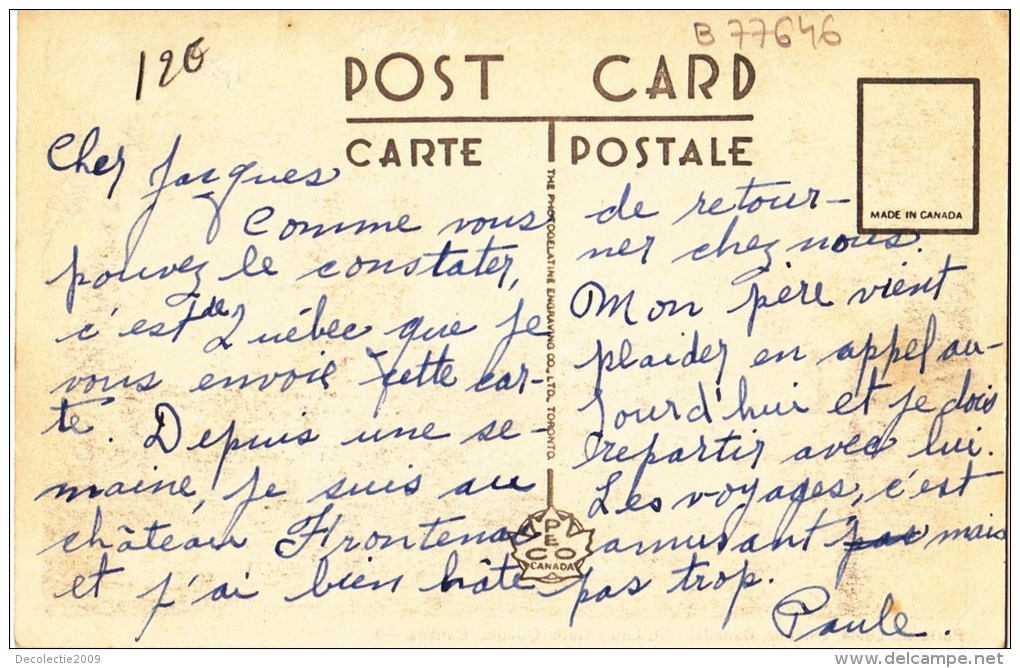 B 77646
120
POST CARD
CARTE POSTALE
MADE IN CANADA
THE PHOTOGELATINE ENGRAVING CO., LTD. TORONTO.
PECO
CANADA
Cher Jacques
Comme vous
pouvez le constater,
c'est de Québec que je
vous envoie cette car-
te. Depuis une se-
maine, je suis au
château Frontenac
et j'ai bien hâte
de retour-
ner chez nous.
Mon père vient
plaider en appel au-
jourd'hui et je dois
repartir avec lui.
Les voyages, c'est
amusant pas mais
pas trop.
Paule.
Decolectie2009
www.delcampe.net